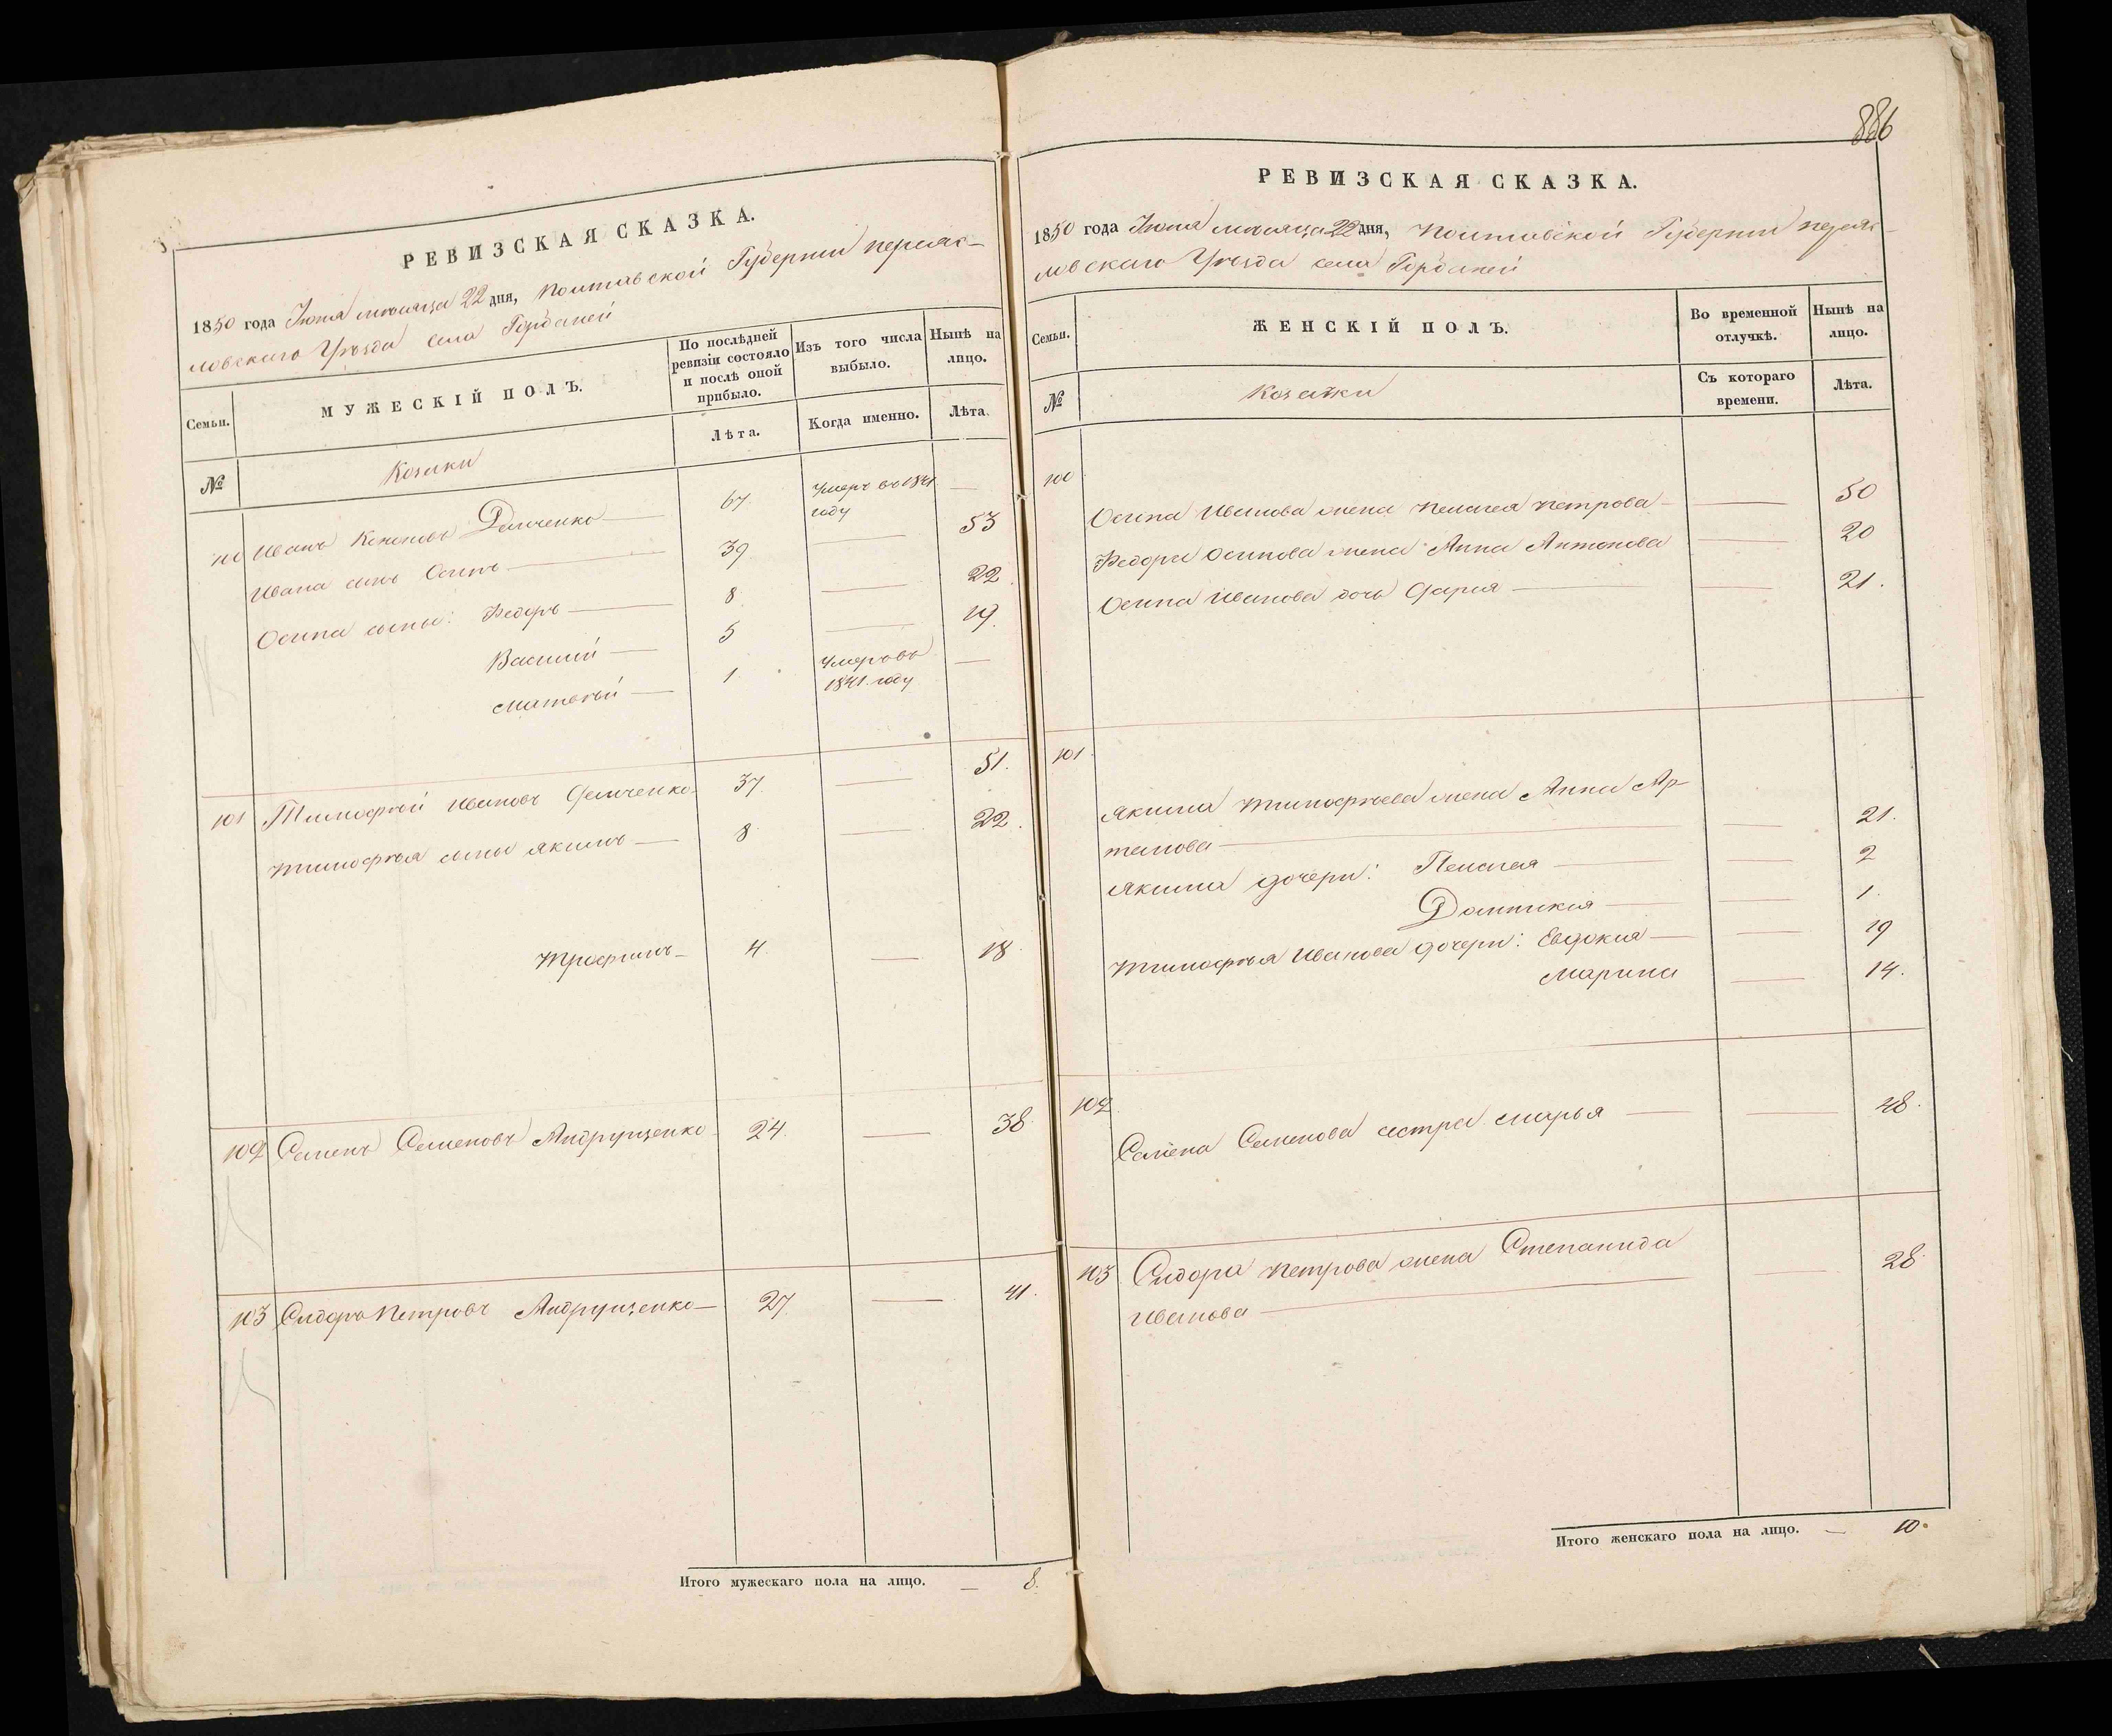 РЕВИЗСКАЯ СКАЗКА.
1850 года Июня месяца 22 дня, Полтавской Губернии Переяс-
ловскаго Уѣзда села
Семьи.
МУЖЕСКІЙ ПОЛЪ.
По послѣдней ревизіи состояло и послѣ оной прибыло.
Изъ того числа выбыло.
Нынѣ на лицо.
№
Козаки
Лѣта.
Когда именно.
Лѣта.
100 Иванъ Кононовъ Демченко 67. Умеръ въ 1841 году —
Ивана сынъ Осипъ 39 — 53
Осипа сыны: Федоръ 8 — 22
Василий 5 — 19.
Матвѣй 1 Умеръ въ 1841 году —
101 Тимофѣй Ивановъ Демченко 37. — 51.
Тимофѣя сыны Якимъ 8 — 22.
Трофимъ 4 — 18
102 Семенъ Семеновъ Андрущенко 24. — 38
103 Сидоръ Петровъ Андрущенко 27. — 41.
Итого мужескаго пола на лицо. — 8.
886
РЕВИЗСКАЯ СКАЗКА.
1850 года Июня месяца 22 дня, Полтавской Губернии Переяс-
ловскаго Уѣзда села
Семьи.
ЖЕНСКІЙ ПОЛЪ.
Во временной отлучкѣ.
Нынѣ на лицо.
№
Козачки
Съ котораго времени.
Лѣта.
100
Осипа Иванова жена Пелагея Петрова — 50
Федора Осипова жена Анна Антонова — 20
Осипа Иванова дочь Дария — 21.
101
Якима Тимофѣева жена Анна Ар-
темова — 21.
Якима дочери: Пелагея — 2
Домникия — 1.
Тимофѣя Иванова дочери: Евдокия — 19
Марина — 14.
102
Семена Семенова сестра Марья — 48.
103 Сидора Петрова жена Степанида
Иванова — 28
Итого женскаго пола на лицо. — 10.